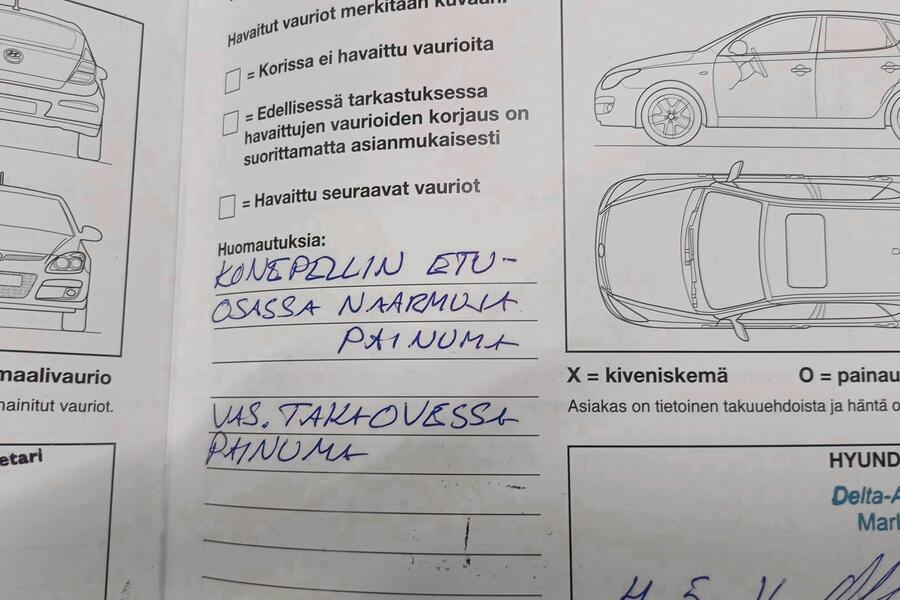 Havaitut vauriot merkitään kuvaan:
= Korissa ei havaittu vaurioita
= Edellisessä tarkastuksessa
havaittujen vaurioiden korjaus on
suorittamatta asianmukaisesti
= Havaittu seuraavat vauriot
Huomautuksia:
KONEPELLIN ETU-
OSASSA NAARMUJA
PAINUMA
VAS. TAKAOVESSA
PAINUMA
maalivaurio
mainitut vauriot.
etari
X = kiveniskemä O = painau
Asiakas on tietoinen takuuehdoista ja häntä o
HYUND
Delta-A
Mark